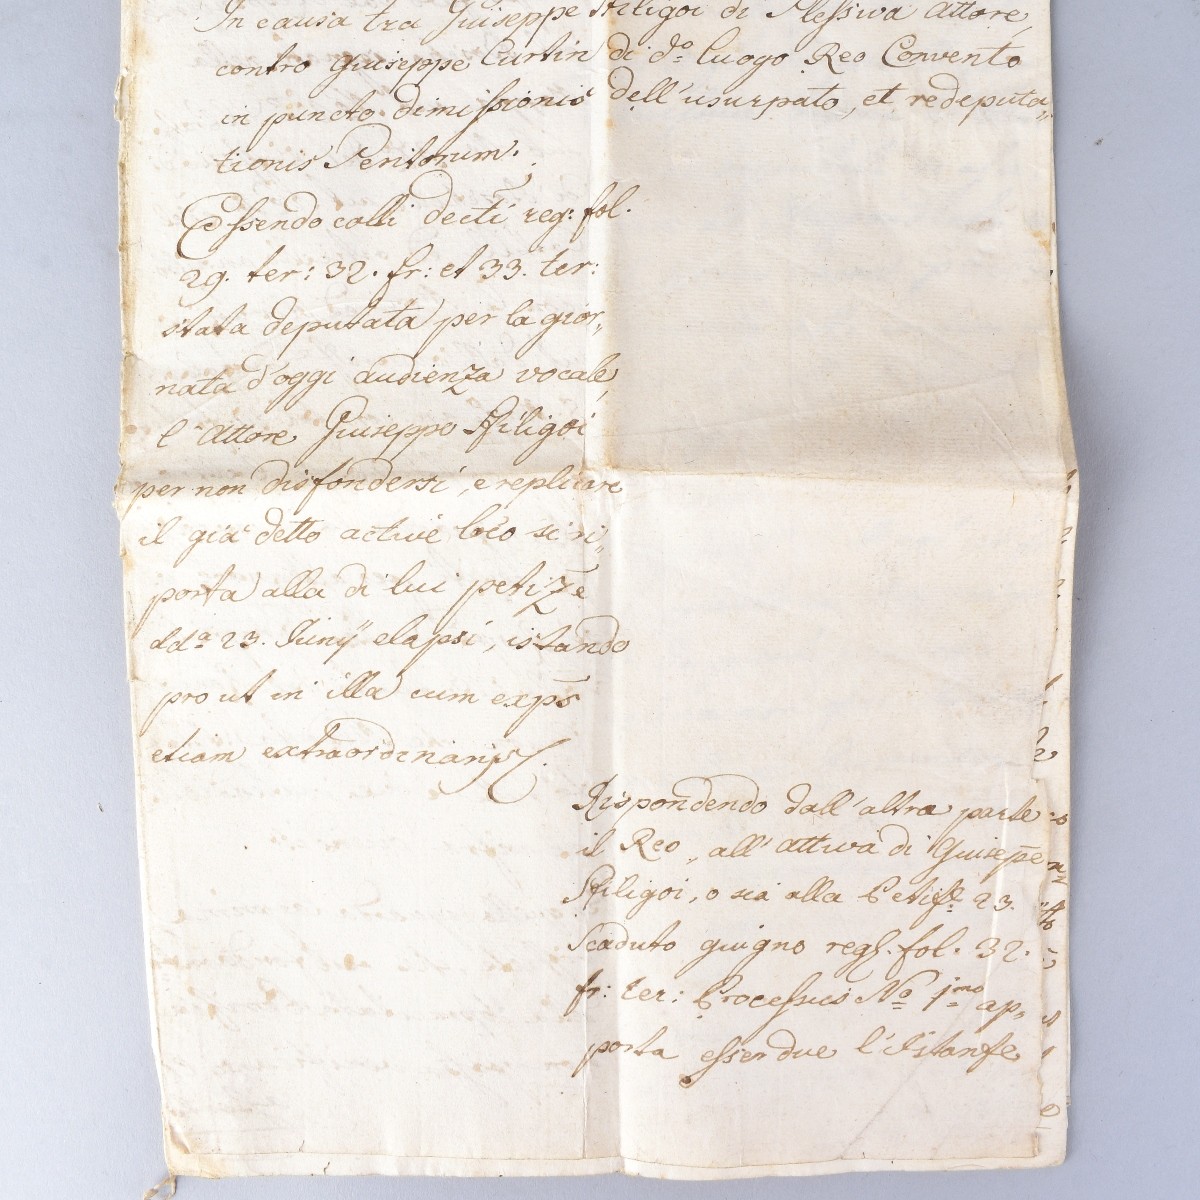 In causa tra Giuseppe Stiligoi di Plessiva Attore
contro Giuseppe Curtin di do. luogo Reo Convento
in puncto dimissionis dell'usurpato, et redeputa,,
tionis Peritorum.
Essendo colli decti reg: fol.
29. ter: 32. fr: et 33. ter:
stata deputata per la gior,,
nata d'oggi audienza vocale,
l'Attore Giuseppe Stiligoi
per non disfondersi, e replicare
il già detto active si ri,,
porta alla di lui petize
dda 23. Junij elapsi, istando
pro ut in illa cum exps
etiam extraordinarijs.
Rispondendo dall'altra parte
il Reo, all'attiva di Giusepe
Stiligoi, o sia alla 23.
Scaduto giugno regs. fol. 32.
fr: ter: Processus No 1mo ap,,
porta esser due l'Istanse